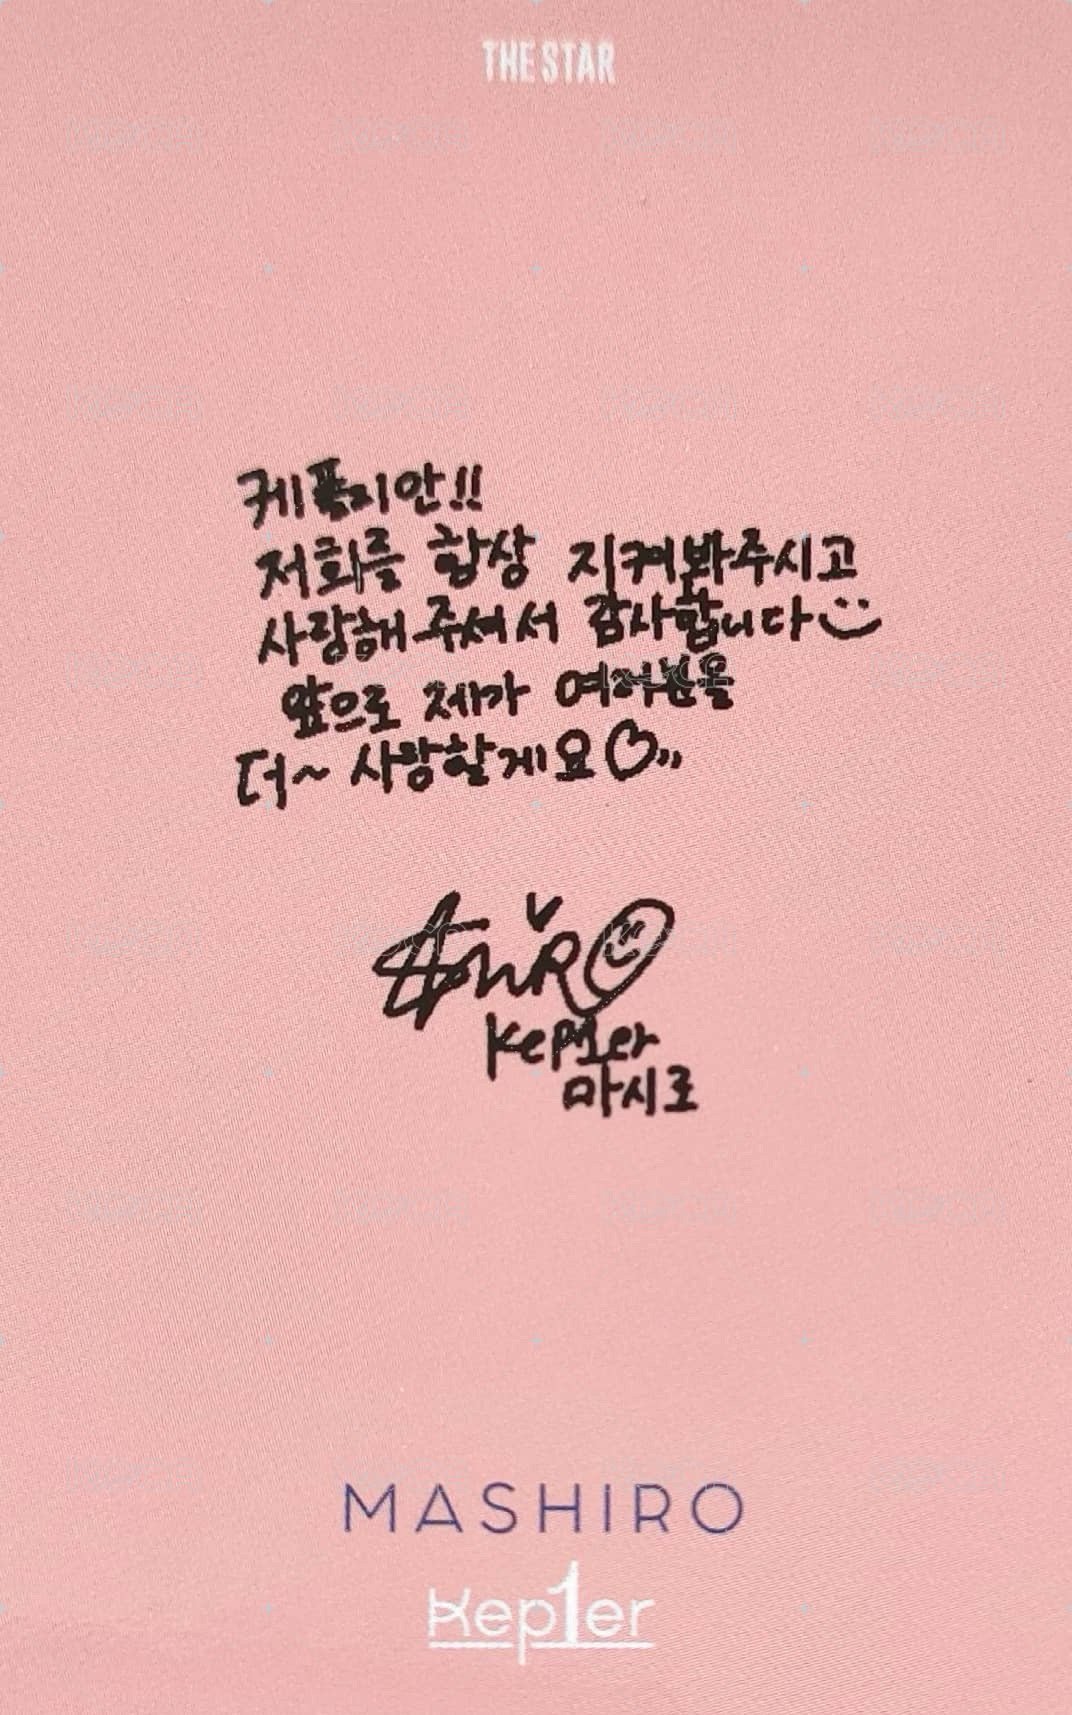 THE STAR
케플리안!!
저희를 항상 지켜봐주시고
사랑해 주셔서 감사합니다
앞으로 제가 여러분을
더~ 사랑할게요
Kep1er
마시로
MASHIRO
Kep1er